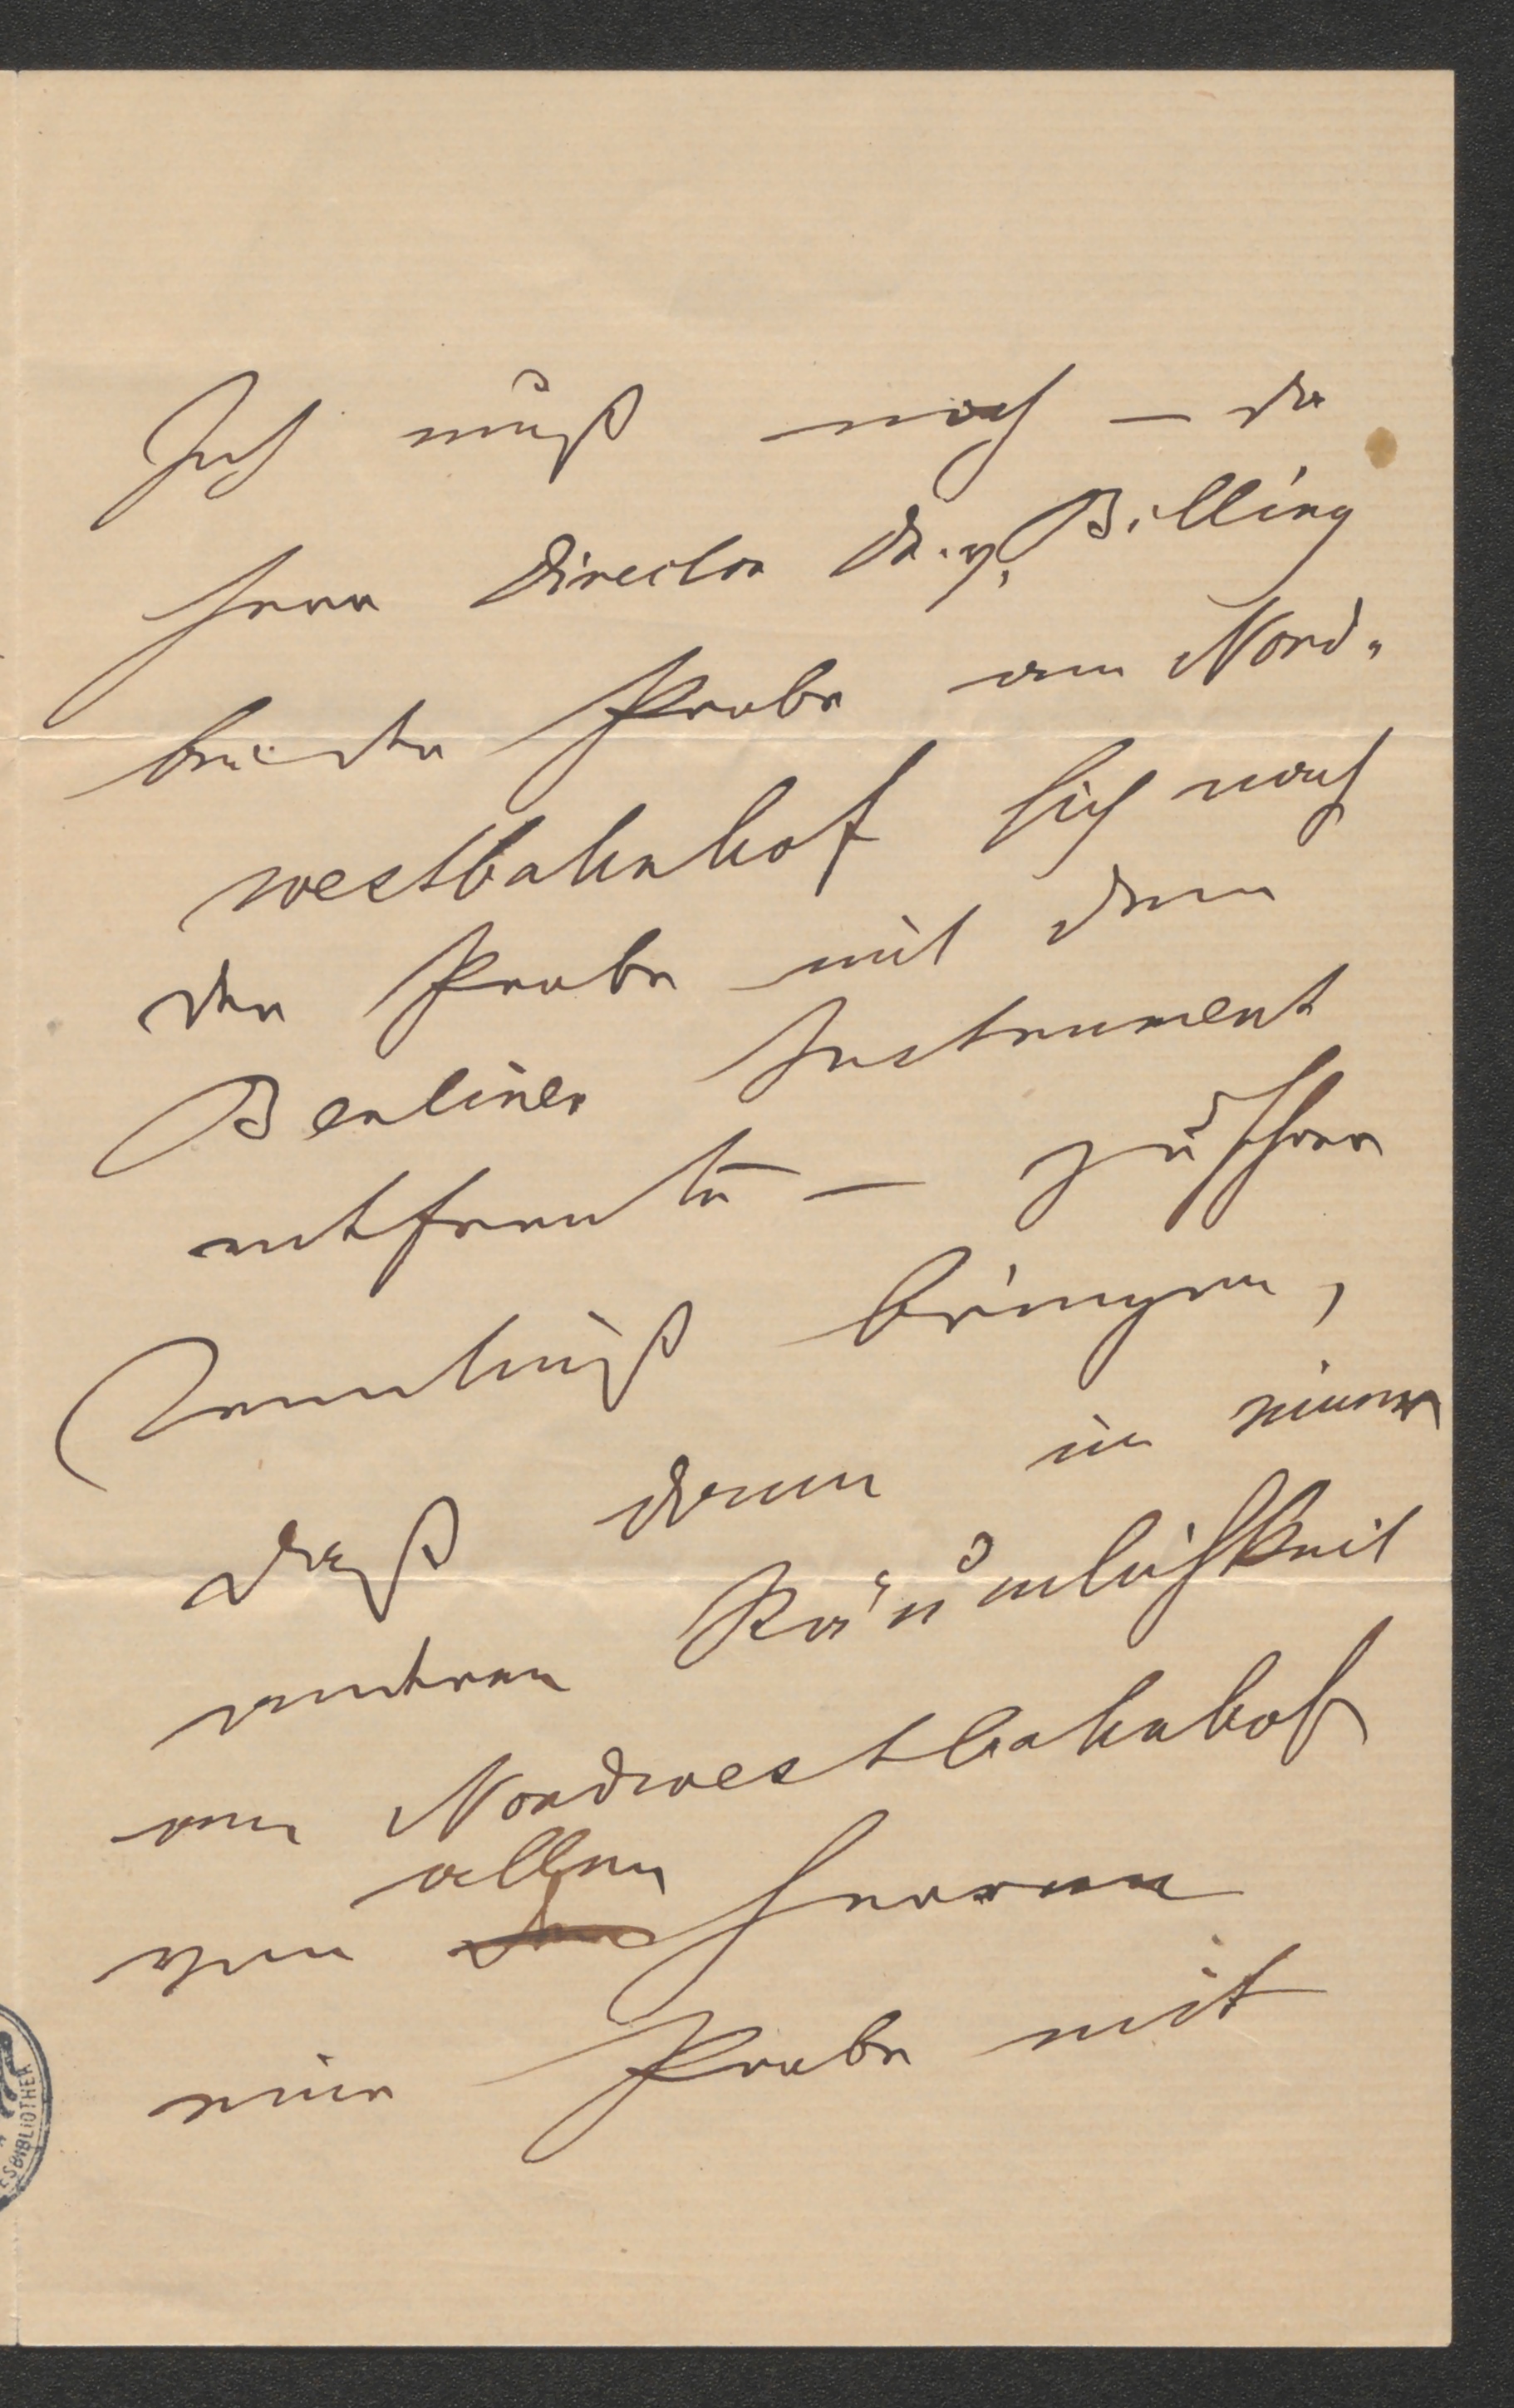 Ich muß noch – da
Herr Director Dr. v. Billing
bei der Probe am Nord-
westbahnhof sich nach
der Probe mit dem
Berliner Instrument
entfernte – zu Ihrer
Kenntniß bringen,
daß dann in einer
anderen Räumlichkeit
am Nordwestbahnhof
von allen Herren
eine Probe mit
ESBIBLIOTHEK